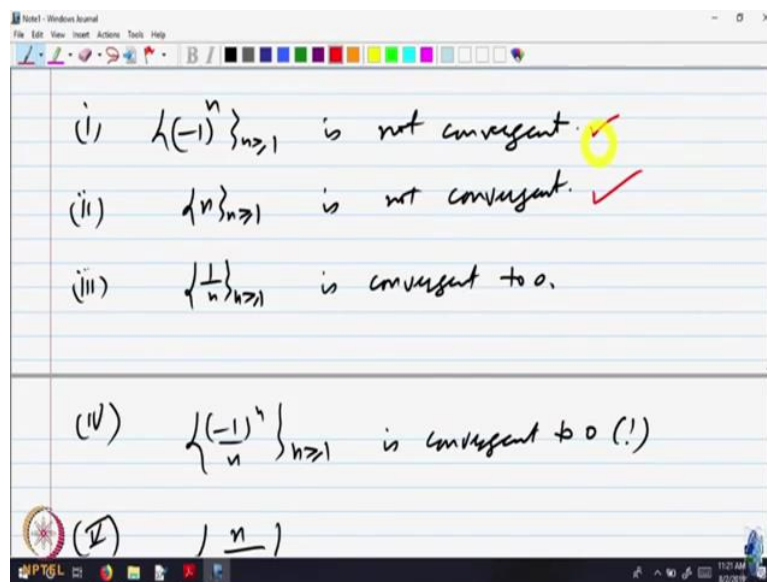 Note1 - Windows Journal
File Edit View Insert Actions Tools Help
B I
(i) {(-1)^n}_{n≥1} is not convergent. ✓
(ii) {n}_{n≥1} is not convergent. ✓
(iii) {1/n}_{n≥1} is convergent to 0.
(iv) {(-1)^n/n}_{n≥1} is convergent to 0 (!)
(V) { n
NPTEL
11:21 AM
8/2/2019